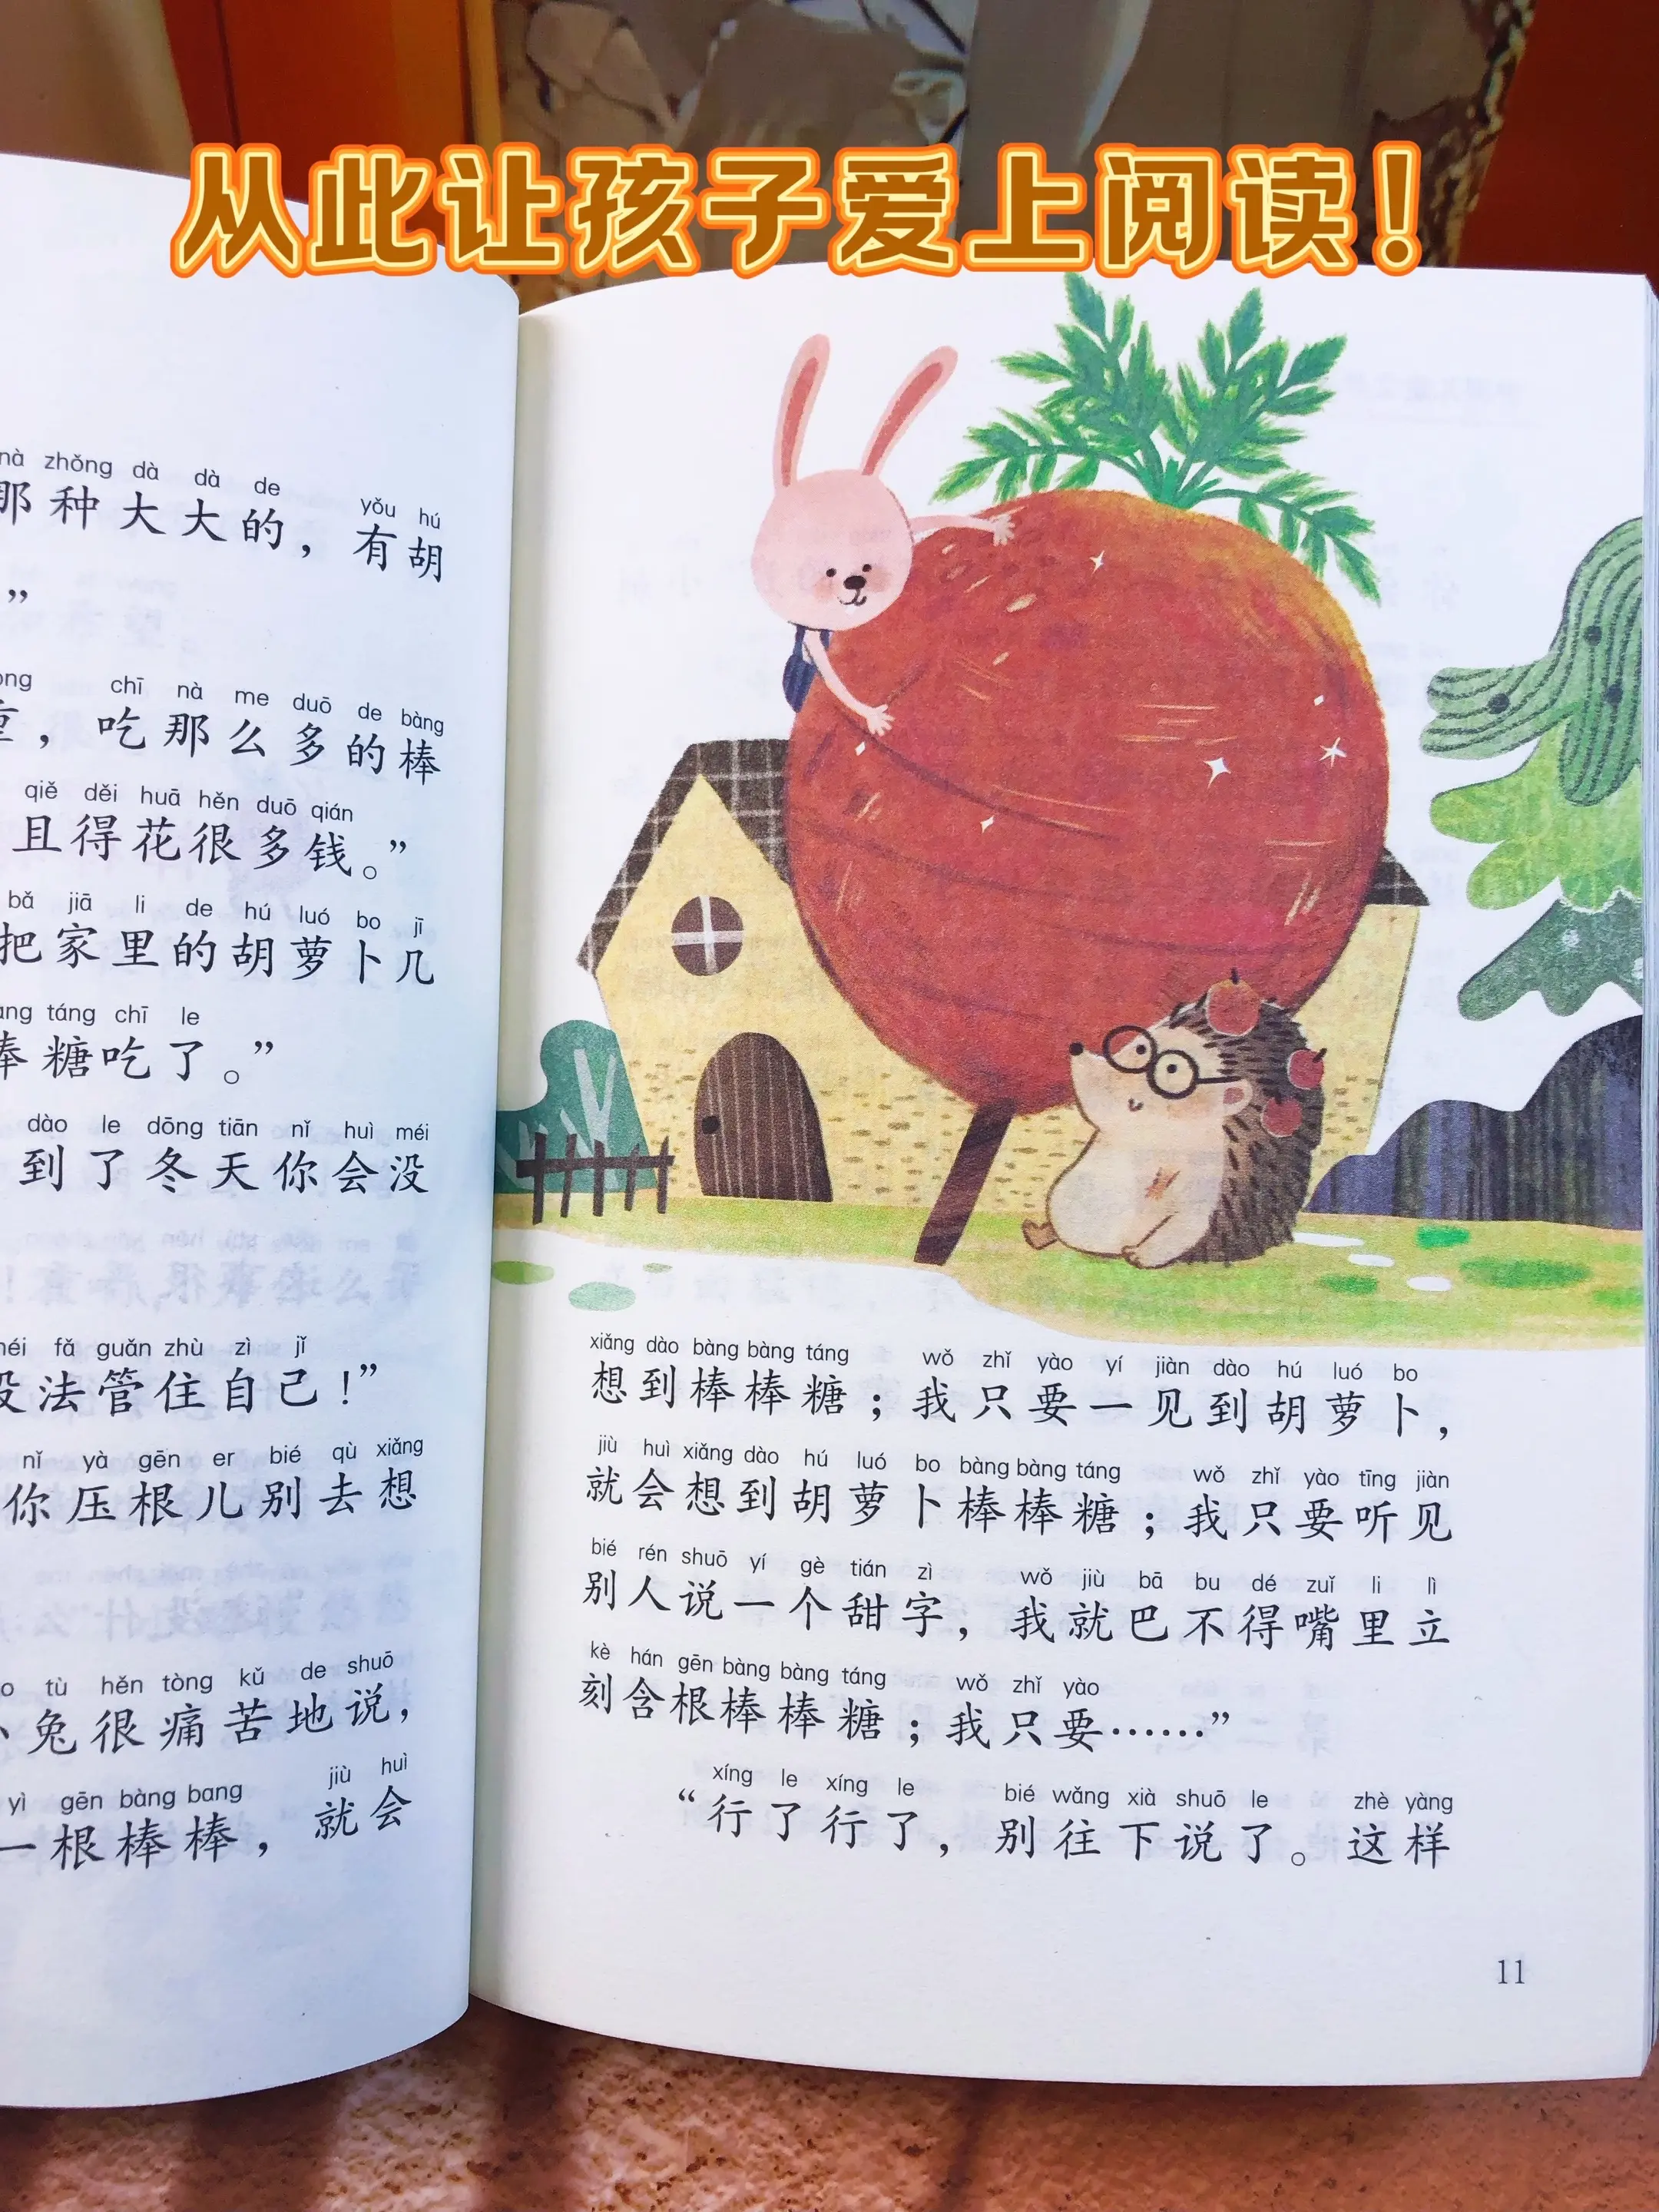 从此让孩子爱上阅读！
nà zhǒng dà dà de yǒu hú
那种大大的，有胡
”
chī nà me duō de bàng
，吃那么多的棒
qiě děi huā hěn duō qián
且得花很多钱。”
bǎ jiā li de hú luó bo jī
把家里的胡萝卜几
táng chī le
棒糖吃了。”
dào le dōng tiān nǐ huì méi
到了冬天你会没
fǎ guǎn zhù zì jǐ
没法管住自己！”
nǐ yà gēn er bié qù xiǎng
你压根儿别去想
tù hěn tòng kǔ de shuō
兔很痛苦地说，
yì gēn bàng bang jiù huì
一根棒棒，就会
xiǎng dào bàng bàng táng wǒ zhǐ yào yí jiàn dào hú luó bo
想到棒棒糖；我只要一见到胡萝卜，
jiù huì xiǎng dào hú luó bo bàng bàng táng wǒ zhǐ yào tīng jiàn
就会想到胡萝卜棒棒糖；我只要听见
bié rén shuō yí gè tián zì wǒ jiù bā bu dé zuǐ li lì
别人说一个甜字，我就巴不得嘴里立
kè hán gēn bàng bàng táng wǒ zhǐ yào
刻含根棒棒糖；我只要……”
xíng le xíng le bié wǎng xià shuō le zhè yàng
“行了行了，别往下说了。这样
11